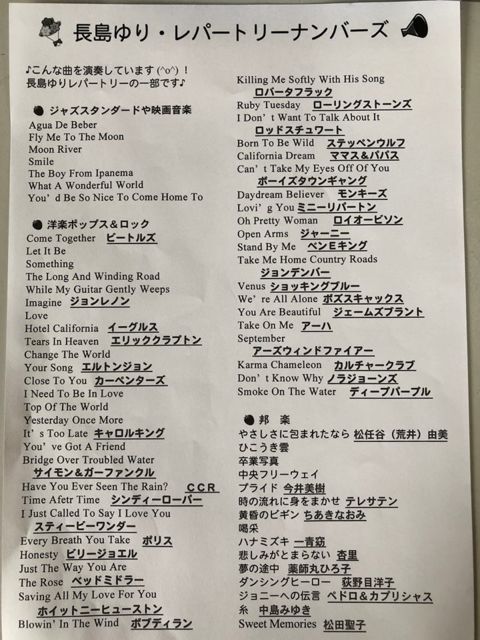 長島ゆり・レパートリーナンバーズ
♪こんな曲を演奏しています(^o^)！
長島ゆりレパートリーの一部です♪
ジャズスタンダードや映画音楽
Agua De Beber
Fly Me To The Moon
Moon River
Smile
The Boy From Ipanema
What A Wonderful World
You'd Be So Nice To Come Home To
洋楽ポップス＆ロック
Come Together ビートルズ
Let It Be
Something
The Long And Winding Road
While My Guitar Gently Weeps
Imagine ジョンレノン
Love
Hotel California イーグルス
Tears In Heaven エリッククラプトン
Change The World
Your Song エルトンジョン
Close To You カーペンターズ
I Need To Be In Love
Top Of The World
Yesterday Once More
It's Too Late キャロルキング
You've Got A Friend
Bridge Over Troubled Water
サイモン＆ガーファンクル
Have You Ever Seen The Rain? ＣＣＲ
Time Afetr Time シンディーローパー
I Just Called To Say I Love You
スティービーワンダー
Every Breath You Take ポリス
Honesty ビリージョエル
Just The Way You Are
The Rose ベッドミドラー
Saving All My Love For You
ホイットニーヒューストン
Blowin' In The Wind ボブディラン
Killing Me Softly With His Song
ロバータフラック
Ruby Tuesday ローリングストーンズ
I Don't Want To Talk About It
ロッドスチュワート
Born To Be Wild ステッペンウルフ
California Dream ママス＆パパス
Can't Take My Eyes Off Of You
ボーイズタウンギャング
Daydream Believer モンキーズ
Lovi'g You ミニーリパートン
Oh Pretty Woman ロイオービソン
Open Arms ジャーニー
Stand By Me ベンＥキング
Take Me Home Country Roads
ジョンデンバー
Venus ショッキングブルー
We're All Alone ボズスキャックス
You Are Beautiful ジェームズブラント
Take On Me アーハ
September
アーズウィンドファイアー
Karma Chameleon カルチャークラブ
Don't Know Why ノラジョーンズ
Smoke On The Water ディープパープル
邦 楽
やさしさに包まれたなら 松任谷（荒井）由美
ひこうき雲
卒業写真
中央フリーウェイ
プライド 今井美樹
時の流れに身をまかせ テレサテン
黄昏のビギン ちあきなおみ
喝采
ハナミズキ 一青窈
悲しみがとまらない 杏里
夢の途中 薬師丸ひろ子
ダンシングヒーロー 荻野目洋子
ジョニーへの伝言 ペドロ＆カプリシャス
糸 中島みゆき
Sweet Memories 松田聖子